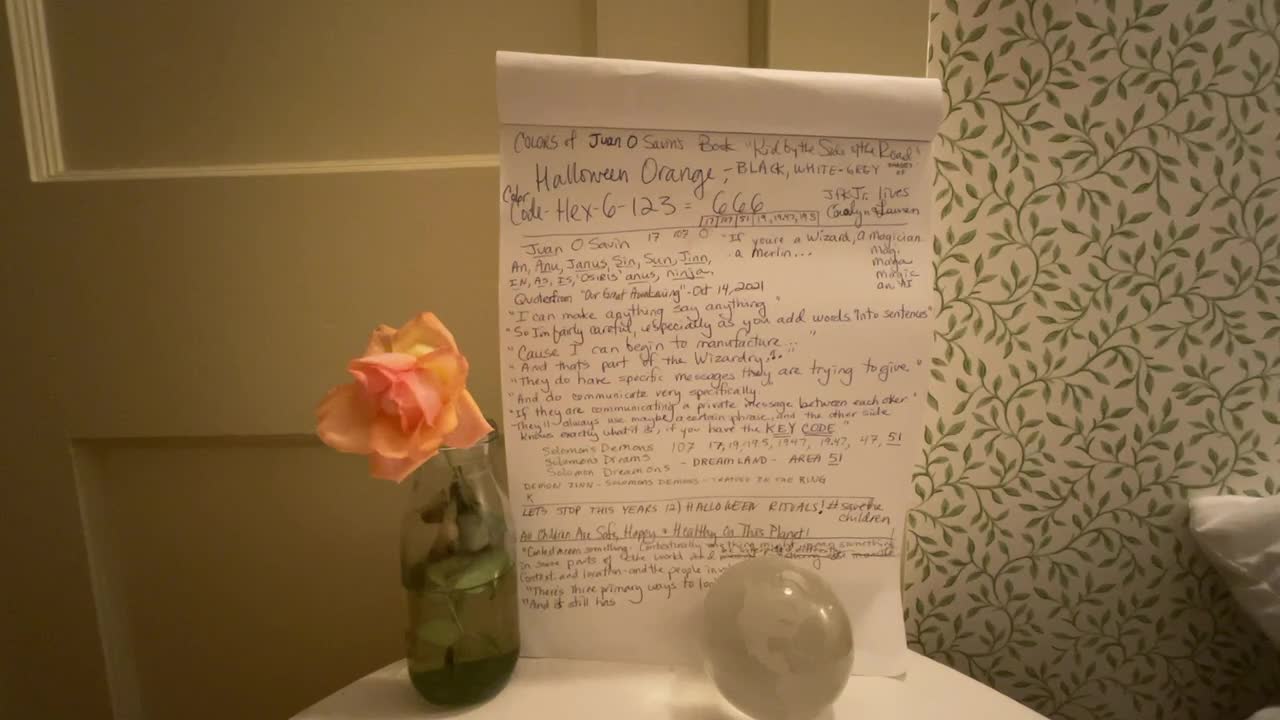 COLORS of Juan O Savin's Book "Kid by the Side of the Road"
Halloween Orange, - BLACK, WHITE-GREY IMAGES OF
Color Code-Hex-6-123 = 666 JFK Jr. lives
17 107 51 19, 19.47, 19.5 Carolyn & Lauren
Juan O Savin 17 107 O "If you're a Wizard, a Magician
An, Anu, Janus, Sin, Sun, Jinn, a Merlin... magi
IN, AS, IS, 'OSIRIS' anus, ninja, maga
magic
an AI
Quotes from "Our Great Awakening" - Oct 14, 2021
"I can make anything say anything"
"So I'm fairly careful, especially as you add words into sentences"
"Cause I can begin to manufacture..."
"And that's part of the Wizardry..."
"They do have specific messages they are trying to give"
"And do communicate very specifically
"If they are communicating a private message between each other"
They'll always use maybe a certain phrase, and the other side
knows exactly what it is, if you have the KEY CODE"
Solomons Demons 107 17, 19, 19.5, 1947, 19.47, 47, 51
Solomons Dreams
Solomon Dreamons - DREAMLAND - AREA 51
DEMON JINN - SOLOMONS DEMONS - TRAPED IN THE RING
K
LETS STOP THIS YEARS 12) HALLOWEEN RITUALS! #savethe
children
All Children Are Safe, Happy & Healthy On This Planet!
something. Contextually anything might mean something
in some parts of the world and
Context and location and the people
"There's three primary ways to
"And it still has